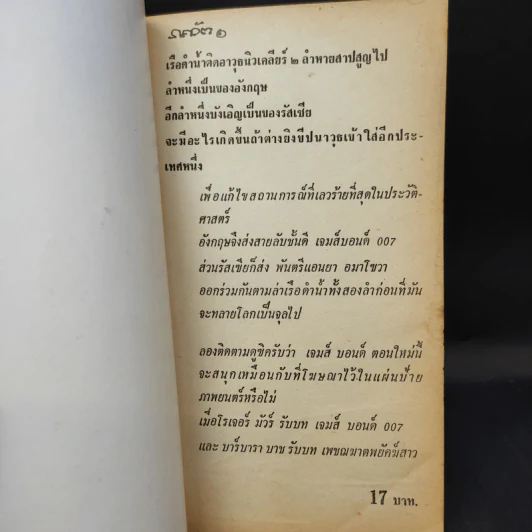 เรือดำน้ำติดอาวุธนิวเคลียร์ ๒ ลำหายสาปสูญไป
ลำหนึ่งเป็นของอังกฤษ
อีกลำหนึ่งบังเอิญเป็นของรัสเซีย
จะมีอะไรเกิดขึ้นถ้าต่างยิงขีปนาวุธเข้าใส่อีกประ-
เทศหนึ่ง
เพื่อแก้ไขสถานการณ์ที่เลวร้ายที่สุดในประวัติ-
ศาสตร์
อังกฤษจึงส่งสายลับชั้นดี เจมส์บอนด์ 007
ส่วนรัสเซียก็ส่ง พันตรีแอนยา อมาโซวา
ออกร่วมกันตามล่าเรือดำน้ำทั้งสองลำก่อนที่มัน
จะทลายโลกเป็นจุลไป
ลองติดตามดูซิครับว่า เจมส์ บอนด์ ตอนใหม่นี้
จะสนุกเหมือนกับที่โฆษณาไว้ในแผ่นป้าย
ภาพยนตร์หรือไม่
เมื่อโรเจอร์ มัวร์ รับบท เจมส์ บอนด์ 007
และ บาร์บารา บาช รับบท เพชฌฆาตพยัคฆ์สาว
17 บาท.